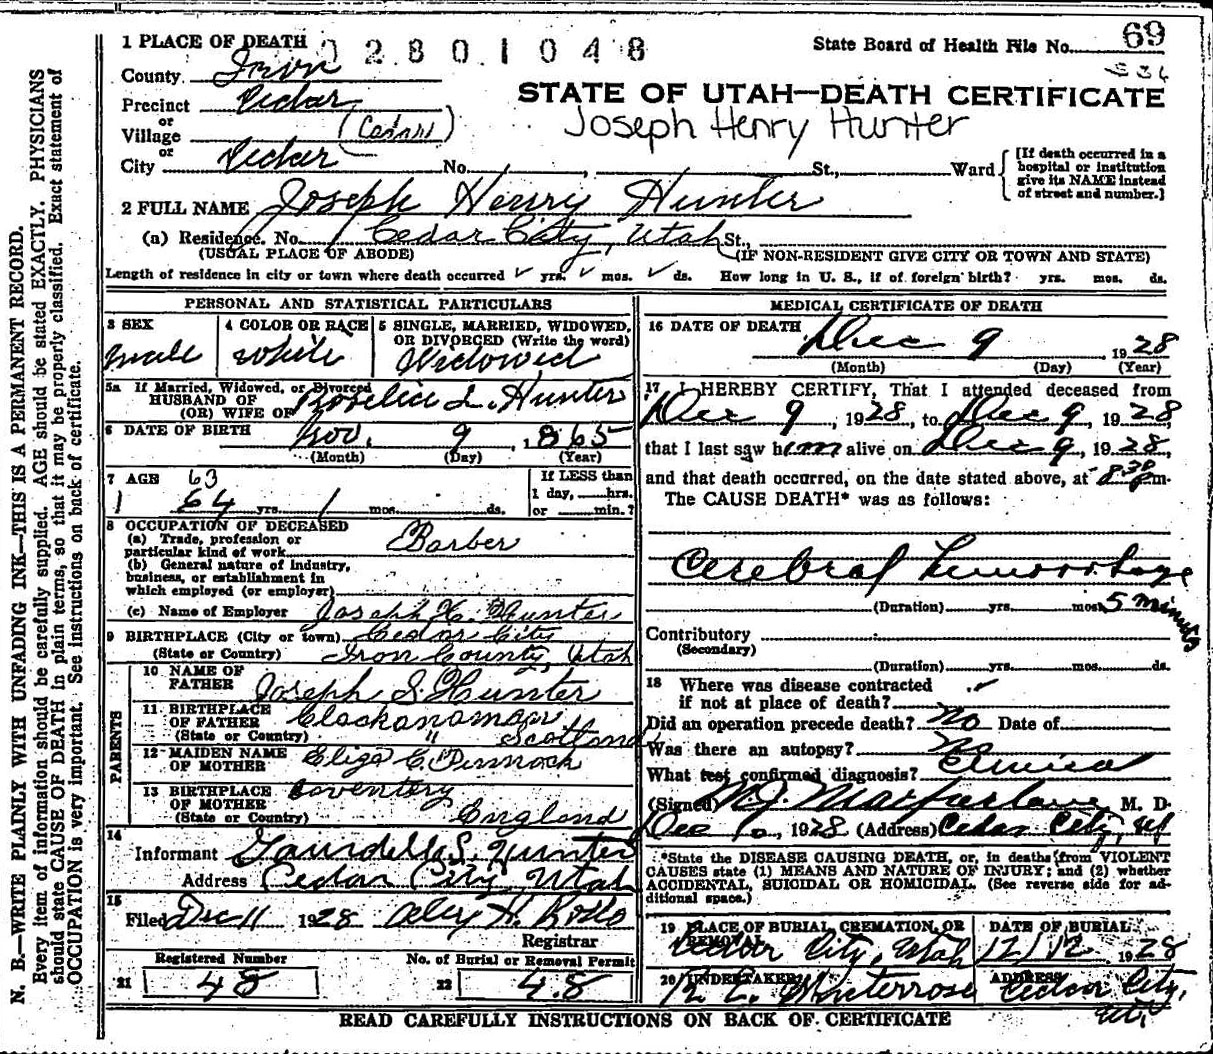 1 PLACE OF DEATH 02801048
State Board of Health File No. 69
County Iron
336
Precinct Cedar
STATE OF UTAH—DEATH CERTIFICATE
or
Village (Cedar)
Joseph Henry Hunter
or
City Cedar No. St., Ward
[If death occurred in a hospital or institution give its NAME instead of street and number.]
2 FULL NAME Joseph Henry Hunter
(a) Residence. No. Cedar City, Utah St.,
(USUAL PLACE OF ABODE) (IF NON-RESIDENT GIVE CITY OR TOWN AND STATE)
Length of residence in city or town where death occurred yrs. mos. ds. How long in U. S., if of foreign birth? yrs. mos. ds.
PERSONAL AND STATISTICAL PARTICULARS
3 SEX male
4 COLOR OR RACE white
5 SINGLE, MARRIED, WIDOWED, OR DIVORCED (Write the word) Widowed
5a If Married, Widowed, or Divorced
HUSBAND OF
(OR) WIFE OF L. Hunter
6 DATE OF BIRTH Nov. 9, 1865
(Month) (Day) (Year)
7 AGE 63
64 yrs. 1 mos. ds.
If LESS than
1 day, hrs.
or min.?
8 OCCUPATION OF DECEASED
(a) Trade, profession or
particular kind of work Barber
(b) General nature of industry,
business, or establishment in
which employed (or employer)
(c) Name of Employer Joseph H. Hunter
9 BIRTHPLACE (City or town) Cedar City
(State or Country) Iron County, Utah
PARENTS
10 NAME OF
FATHER Joseph S. Hunter
11 BIRTHPLACE
OF FATHER
(State or Country) " Scotland
12 MAIDEN NAME
OF MOTHER Eliza C.
13 BIRTHPLACE
OF MOTHER Coventery
(State or Country) England
14
Informant S. Hunter
Address Cedar City, Utah
15
Filed Dec 11 1928 H. Rollo
Registrar
Registered Number
21 48
No. of Burial or Removal Permit
22 48
MEDICAL CERTIFICATE OF DEATH
16 DATE OF DEATH Dec 9 1928
(Month) (Day) (Year)
17 I HEREBY CERTIFY, That I attended deceased from
Dec 9, 1928, to Dec 9, 1928
that I last saw him alive on Dec 9, 1928,
and that death occurred, on the date stated above, at 8:30 pm.
The CAUSE DEATH* was as follows:
Cerebral hemorrhage
(Duration) yrs. mos. 5 minutes
Contributory
(Secondary)
(Duration) yrs. mos. ds.
18 Where was disease contracted
if not at place of death?
Did an operation precede death? No Date of
Was there an autopsy? No
What test confirmed diagnosis? Clinical
(Signed) M. J. Macfarlane, M. D.
Dec 10, 1928 (Address) Cedar City, Ut
*State the DISEASE CAUSING DEATH, or, in deaths from VIOLENT
CAUSES state (1) MEANS AND NATURE OF INJURY; and (2) whether
ACCIDENTAL, SUICIDAL OR HOMICIDAL. (See reverse side for ad-
ditional space.)
19 PLACE OF BURIAL, CREMATION, OR
REMOVAL Cedar City, Utah
DATE OF BURIAL
12/12 1928
20 UNDERTAKER
ADDRESS Cedar City, Ut.
READ CAREFULLY INSTRUCTIONS ON BACK OF CERTIFICATE
N. B.—WRITE PLAINLY WITH UNFADING INK—THIS IS A PERMANENT RECORD.
Every item of information should be carefully supplied. AGE should be stated EXACTLY. PHYSICIANS
should state CAUSE OF DEATH in plain terms, so that it may be properly classified. Exact statement of
OCCUPATION is very important. See instructions on back of certificate.